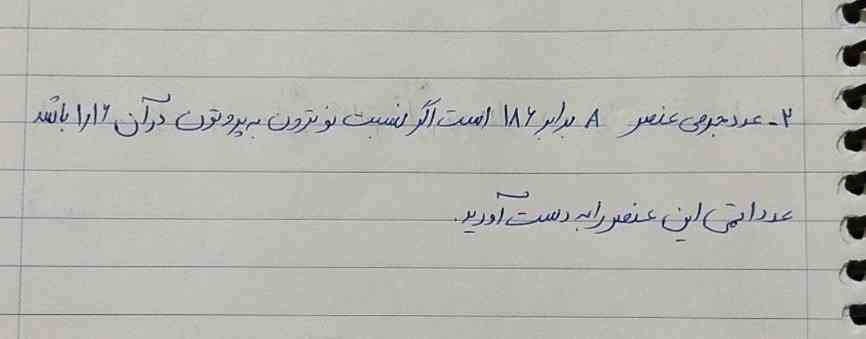 ۲- عدد جرمی عنصر A برابر ۱۸۶ است اگر نسبت نوترون به پروتون در آن ۱٫۱۶ باشد
عدد اتمی این عنصر را به دست آورید.